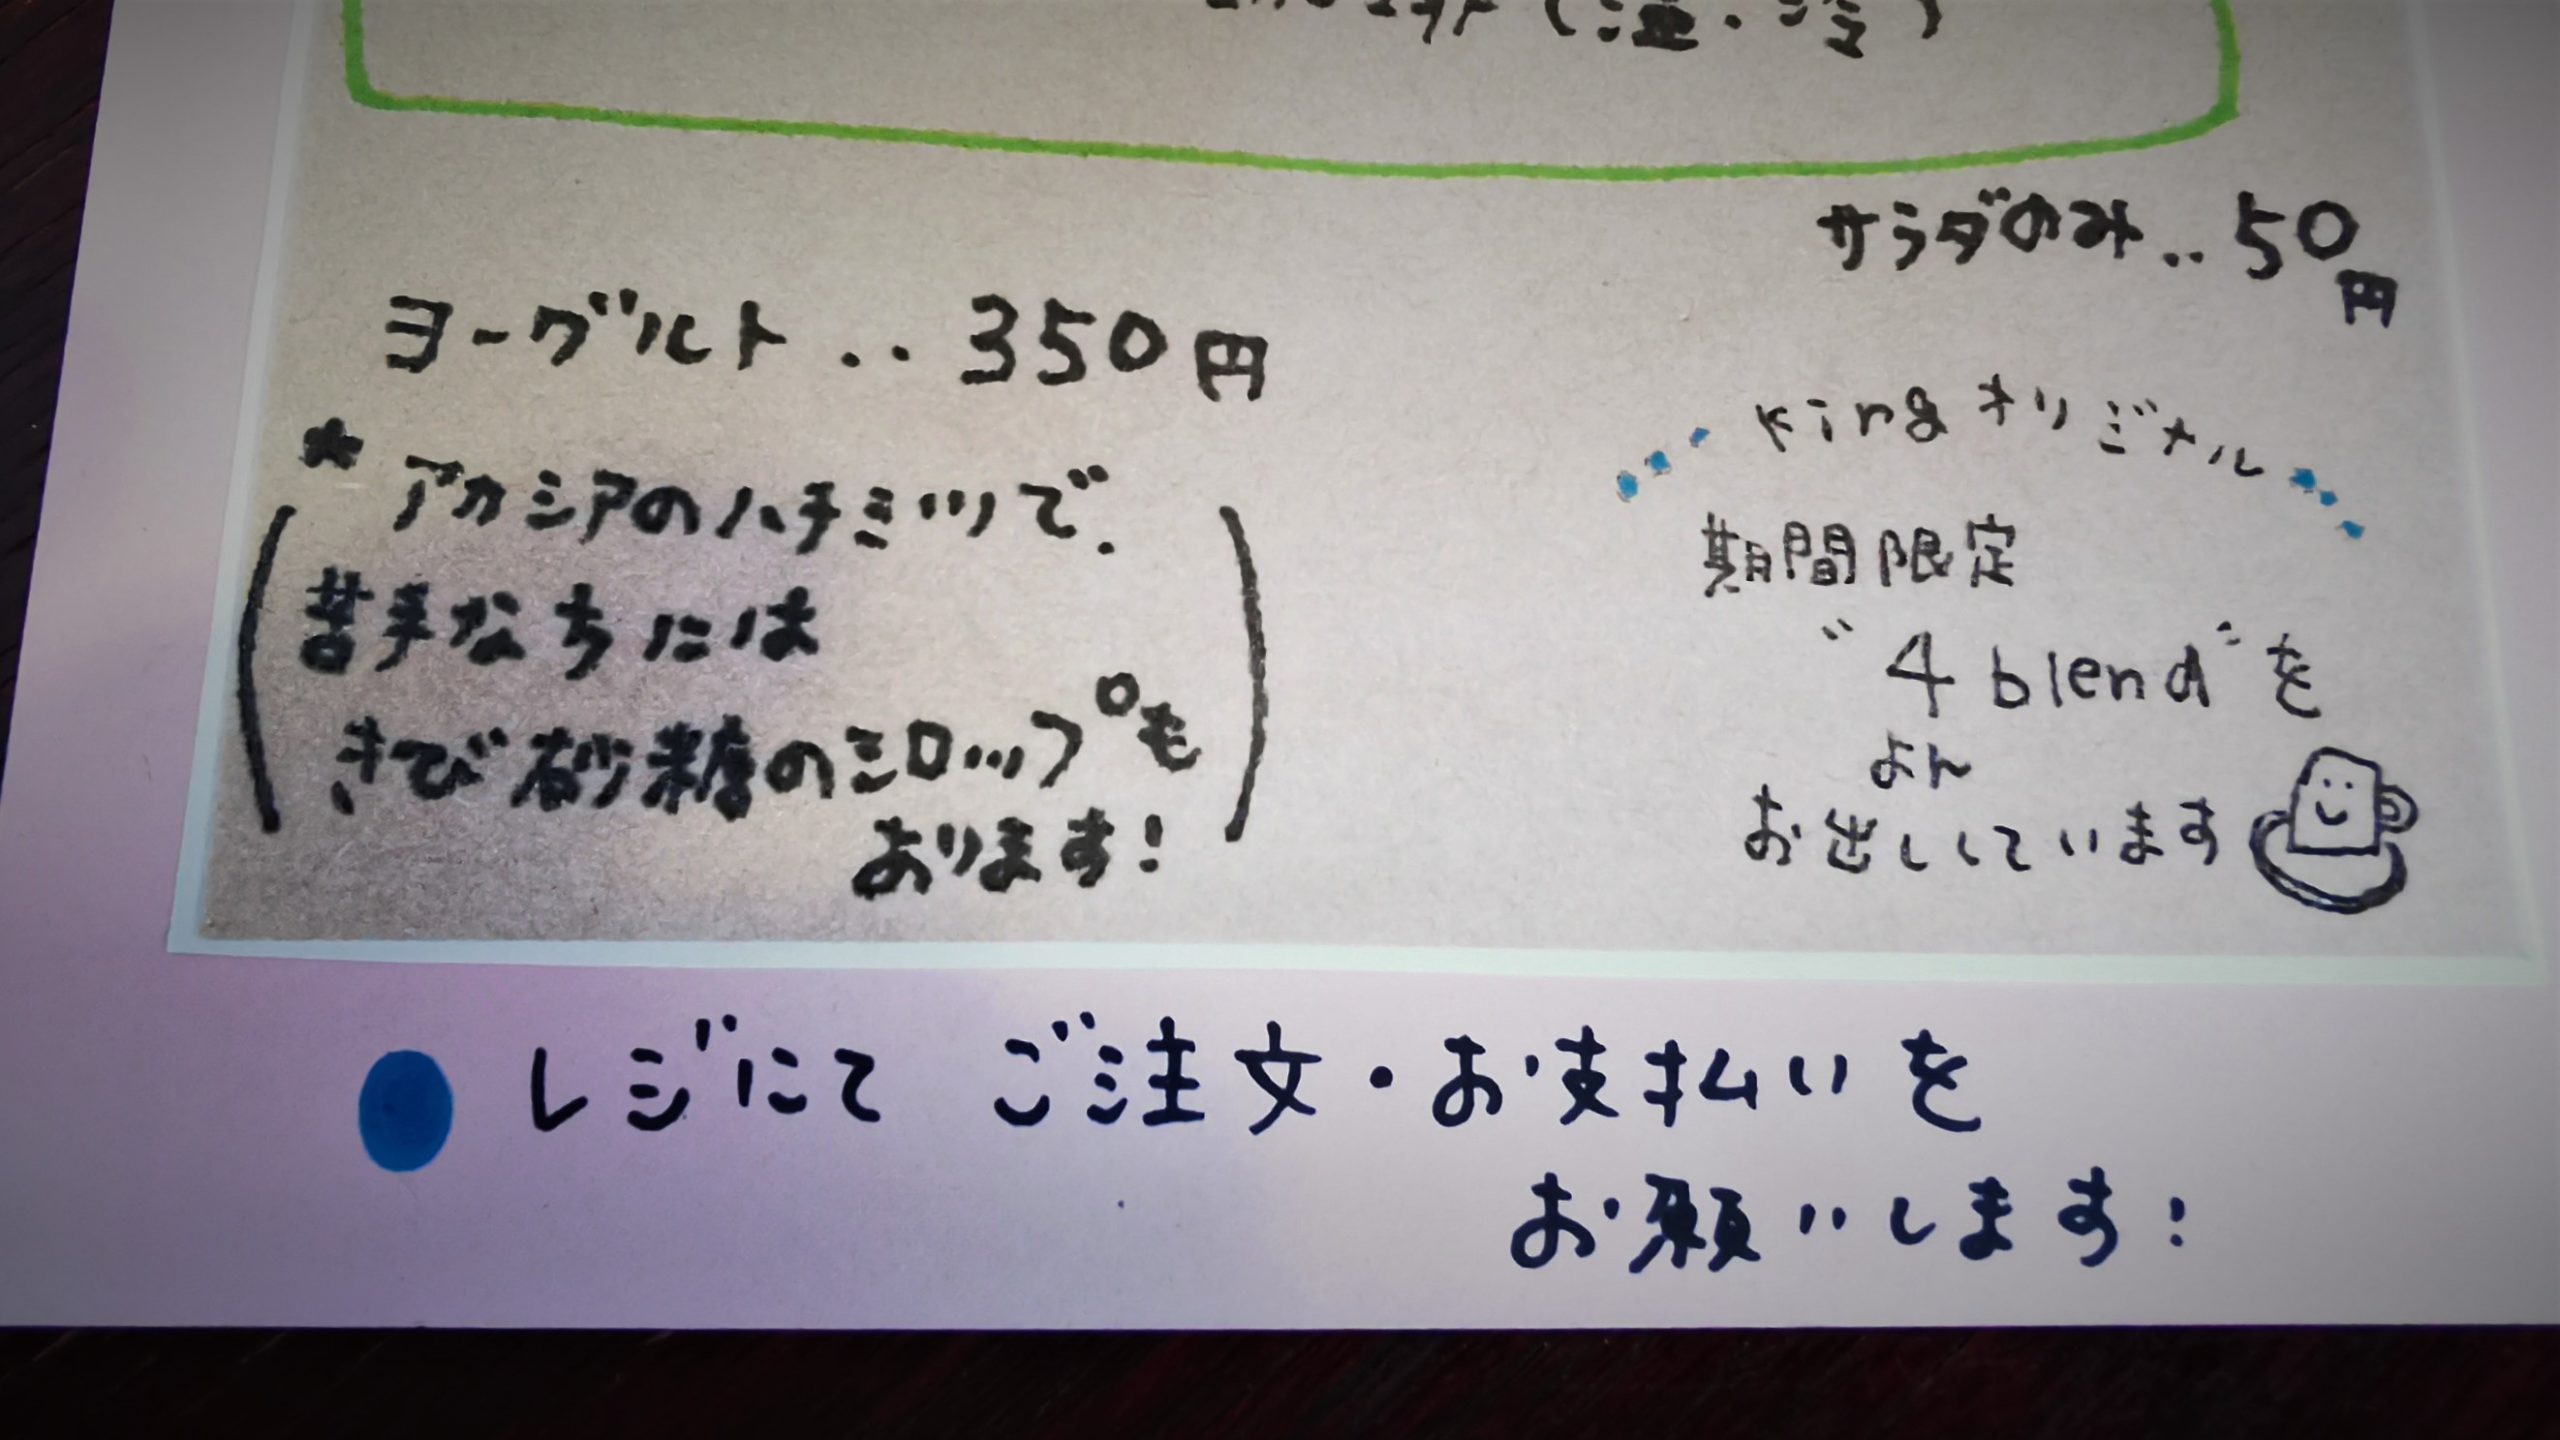 (温・冷)
サラダのみ‥50円
ヨーグルト‥350円
*アカシアのハチミツで.
苦手な方には
きび砂糖のシロップも
あります!
kingオリジナル
期間限定
"4 blend"を
よん
お出ししています
レジにて ご注文・お支払いを
お願いします!